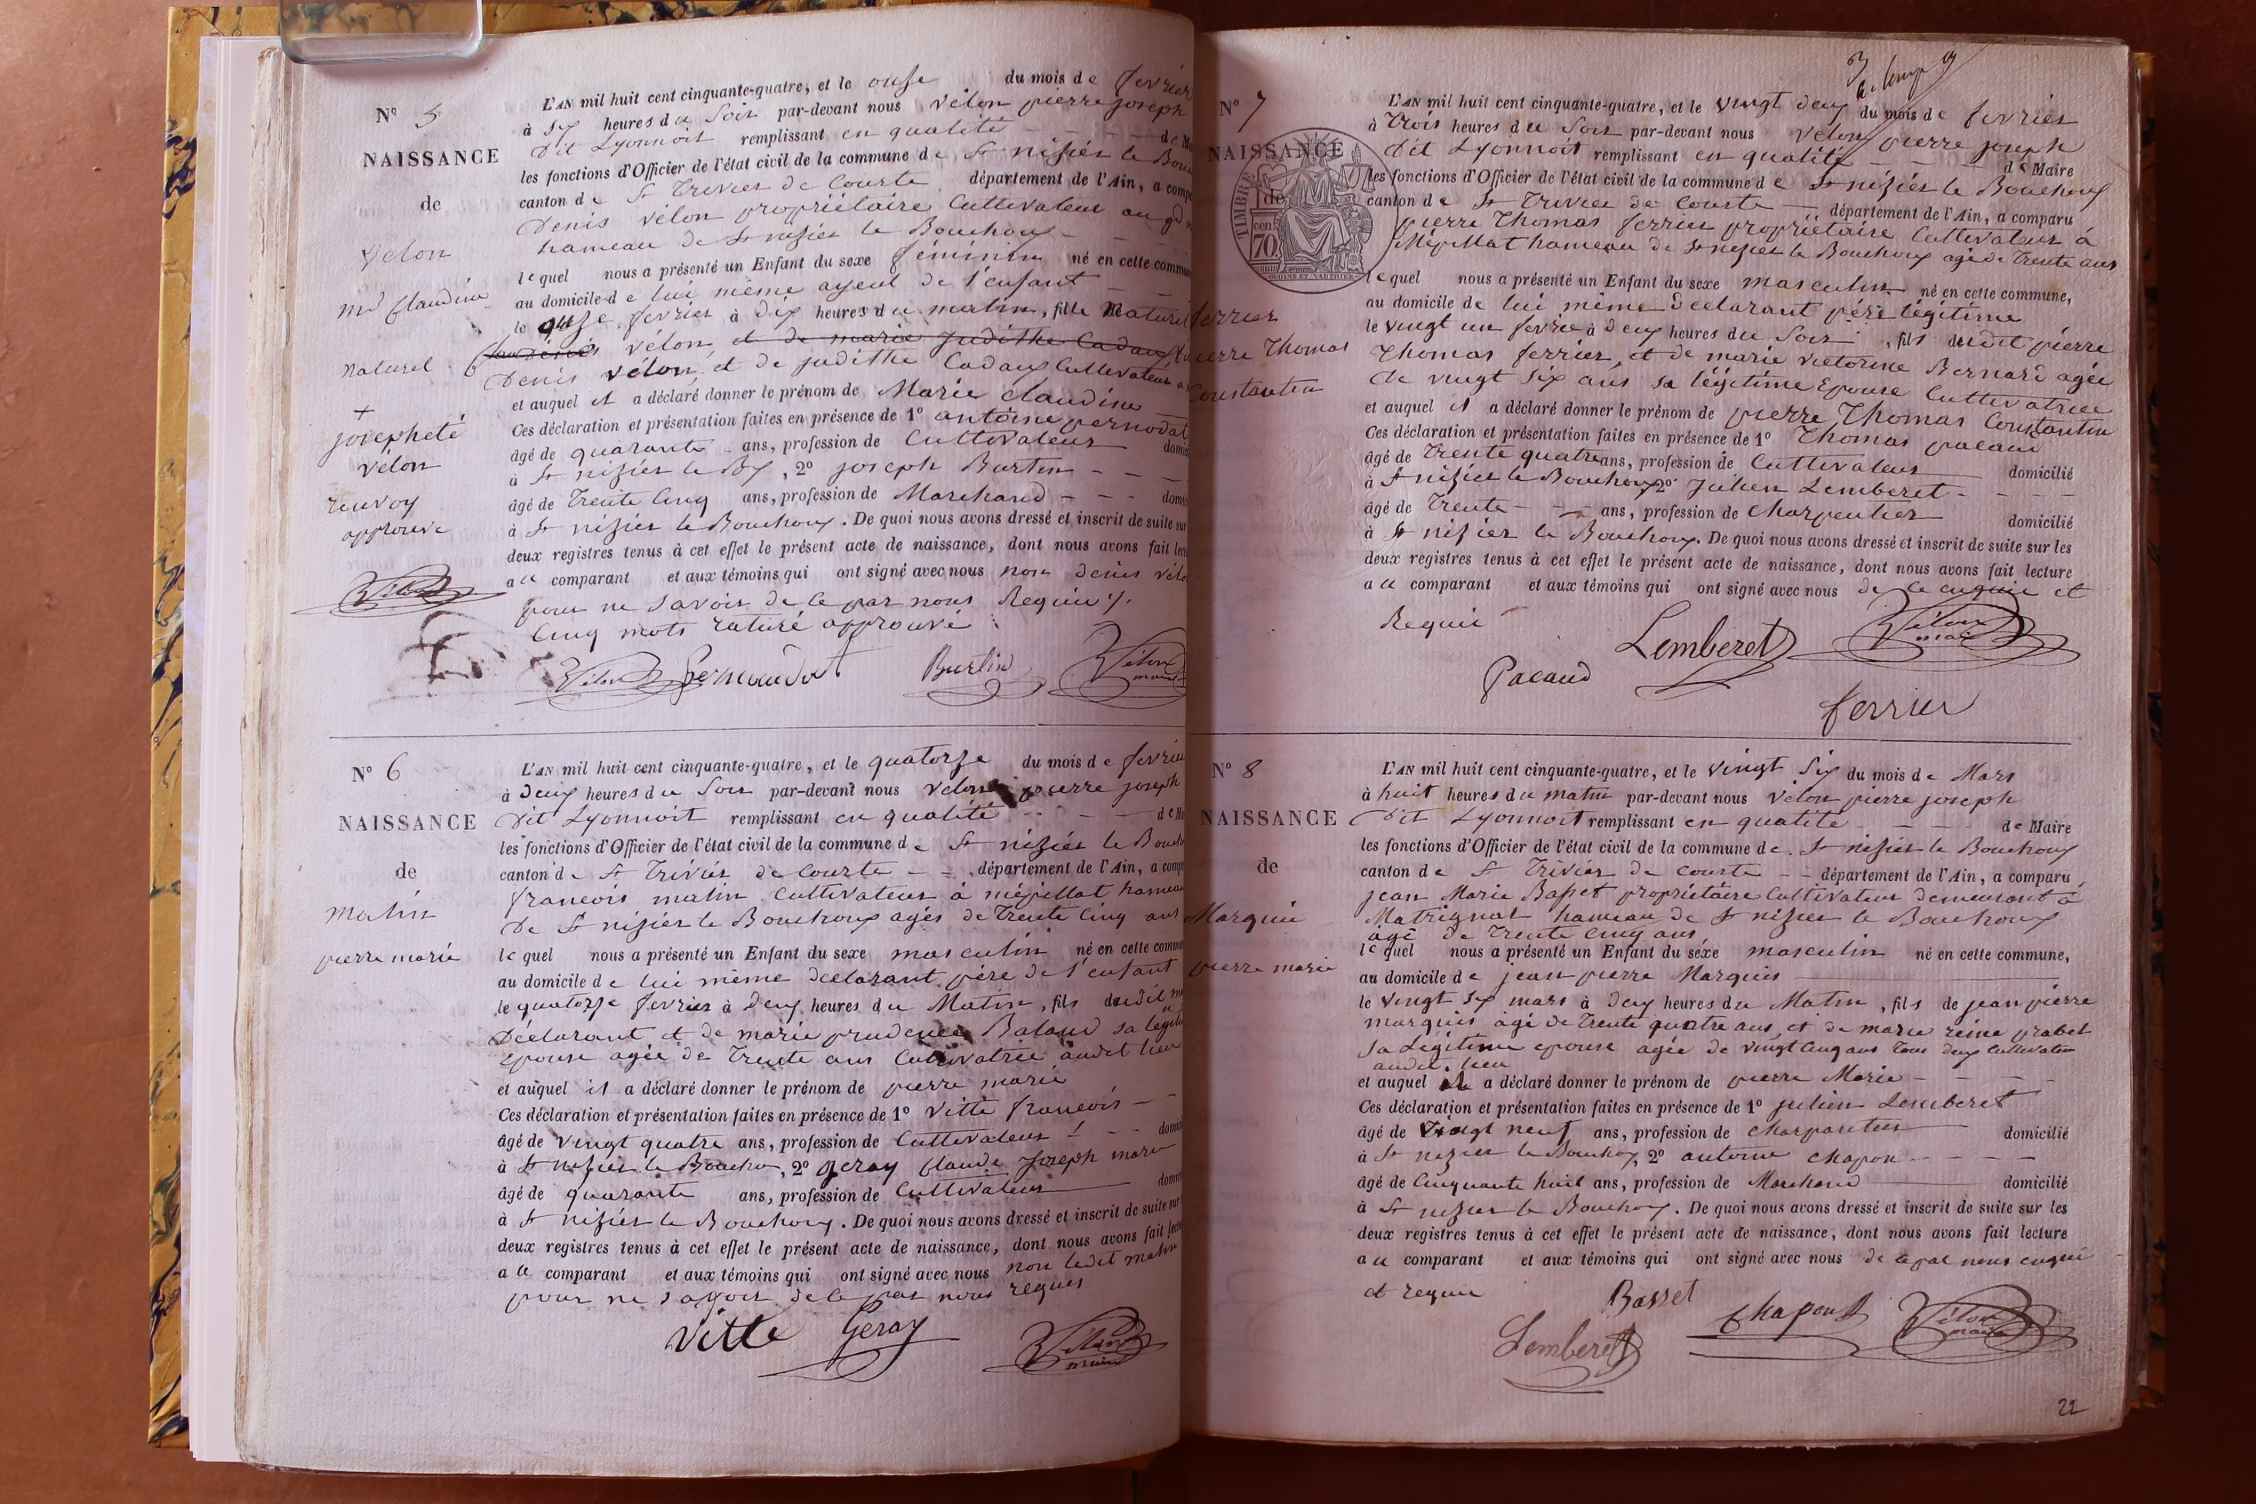 N° 5
NAISSANCE
de
Vélon
Mie Claudine
naturel
+
josephete
vélon
renvoy
approuvé
L'AN mil huit cent cinquante-quatre, et le onze du mois de fevrier
à Six heures du Soir par-devant nous Vélon pierre joseph
dit Lyonnoit remplissant en qualité
les fonctions d'Officier de l'état civil de la commune de St nizier le Bou
canton de St Trivier de Courte département de l'Ain, a comp
Denis vélon propriétaire Cultivateur au gd
hameau de St nizier le Bouchoux
lequel nous a présenté un Enfant du sexe féminin né en cette commun
au domicile de lui même ayeul de l'enfant
le onze fevrier à dix heures du matin, fille Naturel
denis vélon et de marie Judithe Cadoux
Denis vélon et de judithe Cadoux Cultivateur
et auquel il a déclaré donner le prénom de Marie claudine
Ces déclaration et présentation faites en présence de 1° antoine pernodat
âgé de quarante ans, profession de Cultivateur domi
à St nizier le Bx, 2° joseph Burtin
âgé de Trente Cinq ans, profession de Marchand dom
à St nizier le Bouchoux. De quoi nous avons dressé et inscrit de suite sur
deux registres tenus à cet effet le présent acte de naissance, dont nous avons fait lec
au comparant et aux témoins qui ont signé avec nous non denis vélo
pour ne savoir de ce par nous Requis
Cinq mots raturé approuvé
Burtin Vélon maire
N° 6
NAISSANCE
de
Matin
pierre marie
L'AN mil huit cent cinquante-quatre, et le quatorze du mois de fevrier
à deux heures du Soir par-devant nous Vélon pierre joseph
dit Lyonnoit remplissant en qualité de M
les fonctions d'Officier de l'état civil de la commune de St nizier le Bouch
canton de St Trivier de Courte département de l'Ain, a comp
francois matin Cultivateur à mépillat hameau
De St nizier le Bouchoux agés de Trente Cinq ans
lequel nous a présenté un Enfant du sexe masculin né en cette comm
au domicile de lui même declarant père de l'enfant
le quatorze fevrier à deux heures du Matin, fils dudit
Déclarant et de marie prudence Baland sa légit
épouse agée de Trente ans Cultivatrice audit lieu
et auquel il a déclaré donner le prénom de pierre marie
Ces déclaration et présentation faites en présence de 1° Vitte francois
âgé de vingt quatre ans, profession de Cultivateur domi
à St nizier le Bouchou, 2° geray Claude Joseph marie
âgé de quarante ans, profession de Cultivateur domi
à St nizier le Bouchoux. De quoi nous avons dressé et inscrit de suite sur
deux registres tenus à cet effet le présent acte de naissance, dont nous avons fait lect
au comparant et aux témoins qui ont signé avec nous non ledit matin
pour ne savoir de ce par nous requis
Vitte Geray Vélon maire
N° 7
NAISSANCE
de
TIMBRE
cent
70
ferrier
pierre Thomas
Constantin
L'AN mil huit cent cinquante-quatre, et le vingt deux du mois de fevrier
à Trois heures du Soir par-devant nous Vélon pierre joseph
dit Lyonnoit remplissant en qualité de Maire
les fonctions d'Officier de l'état civil de la commune de St nizier le Bouchoux
canton de St Trivier de Courte département de l'Ain, a comparu
pierre Thomas ferrier propriétaire Cultivateur à
Mépillat hameau de St nizier le Bouchoux agé de Trente ans
lequel nous a présenté un Enfant du sexe masculin né en cette commune,
au domicile de lui même Declarant père légitime
le vingt un fevrier à deux heures du Soir, fils dudit pierre
Thomas ferrier, et de marie victorine Bernard agée
de vingt six ans sa légitime Epouse Cultivatrice
et auquel il a déclaré donner le prénom de pierre Thomas Constantin
Ces déclaration et présentation faites en présence de 1° Thomas pacaud
âgé de Trente quatre ans, profession de Cultivateur domicilié
à St nizier le Bouchoux, 2° Julien Lemberet
âgé de Trente ans, profession de Charpentier domicilié
à St nizier le Bouchoux. De quoi nous avons dressé et inscrit de suite sur les
deux registres tenus à cet effet le présent acte de naissance, dont nous avons fait lecture
au comparant et aux témoins qui ont signé avec nous de ce enquis et
Requis
Lemberet Vélon maire
Pacaud
ferrier
N° 8
NAISSANCE
de
Marquis
pierre marie
L'AN mil huit cent cinquante-quatre, et le vingt Six du mois de Mars
à huit heures du matin par-devant nous Vélon pierre joseph
dit Lyonnoit remplissant en qualité de Maire
les fonctions d'Officier de l'état civil de la commune de St nizier le Bouchoux
canton de St Trivier de Courte département de l'Ain, a comparu
jean Marie Basset propriétaire Cultivateur demeurant à
Matrignat hameau de St nizier le Bouchoux
âgé de Trente Cinq ans
lequel nous a présenté un Enfant du sexe masculin né en cette commune,
au domicile de jean pierre Marquis
le vingt six mars à deux heures du Matin, fils de jean pierre
marquis agé de Trente quatre ans, et de marie reine prabel
sa Légitime epouse agée de vingt Cinq ans Tous deux Cultivateur
audit lieu
et auquel il a déclaré donner le prénom de pierre Marie
Ces déclaration et présentation faites en présence de 1° julien Lemberet
âgé de vingt neuf ans, profession de charpentier domicilié
à St nizier le Bouchoux, 2° antoine chapon
âgé de Cinquante huit ans, profession de Marchand domicilié
à St nizier le Bouchoux. De quoi nous avons dressé et inscrit de suite sur les
deux registres tenus à cet effet le présent acte de naissance, dont nous avons fait lecture
au comparant et aux témoins qui ont signé avec nous de ce par nous enquis
et requis
Basset Chapon Vélon maire
Lemberet
22